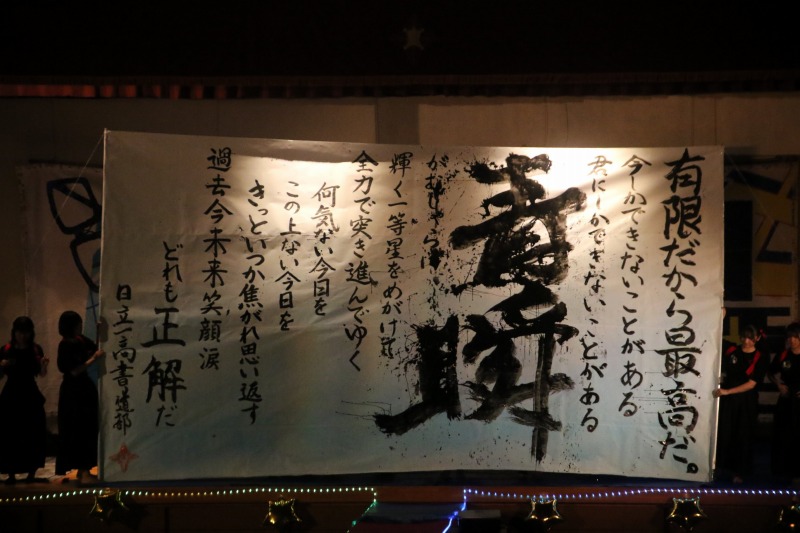 有限だから最高だ。
今しかできないことがある
君にしかできないことがある
青瞬
がむしゃらに
輝く一等星をめがけ
全力で突き進んでゆく
何気ない今日を
この上ない今日を
きっといつか焦がれ思い返す
過去今未来笑顔涙
どれも正解だ
日立一高書道部